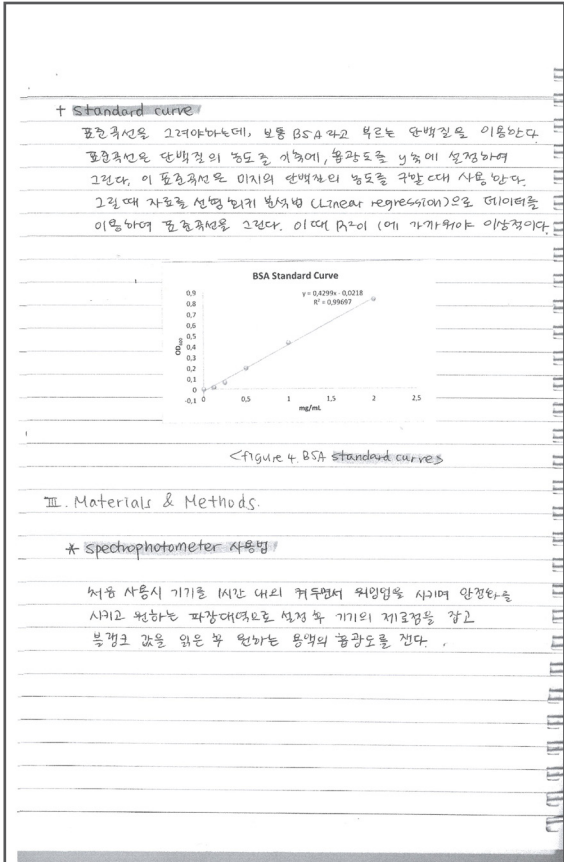 + standard curve
표준곡선을 그려야하는데, 보통 BSA 라고 부르는 단백질을 이용한다
표준곡선은 단백질의 농도를 x축에, 흡광도를 y축에 설정하여
그린다. 이 표준곡선은 미지의 단백질의 농도를 구할 때 사용한다.
그릴때 자료를 선형 회귀 분석법 (Linear regression)으로 데이터를
이용하여 표준곡선을 그린다. 이때 R²이 1에 가까워야 이상적이다.
BSA Standard Curve
y = 0,4299x - 0,0218
R² = 0,99697
0,9
0,8
0,7
0,6
0,5
0,4
0,3
0,2
0,1
0
-0,1
0 0,5 1 1,5 2 2,5
mg/mL
<figure 4. BSA standard curve>
III. Materials & Methods.
* spectrophotometer 사용법
처음 사용시 기기를 1시간 내외 켜두면서 워밍업을 시키며 안정화를
시키고 원하는 파장대역으로 설정 후 기기의 제로점을 잡고
블랭크 값을 읽은 후 원하는 용액의 흡광도를 잰다.